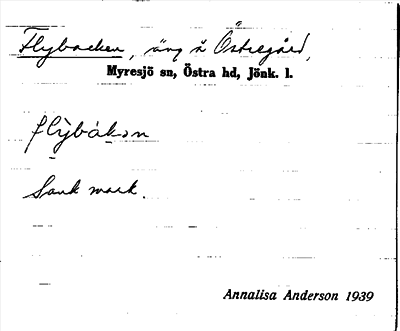 Flybacken, äng å Östregård,
Myresjö sn, Östra hd, Jönk. l.
flỳbákən
Sank mark.
Annalisa Anderson 1939